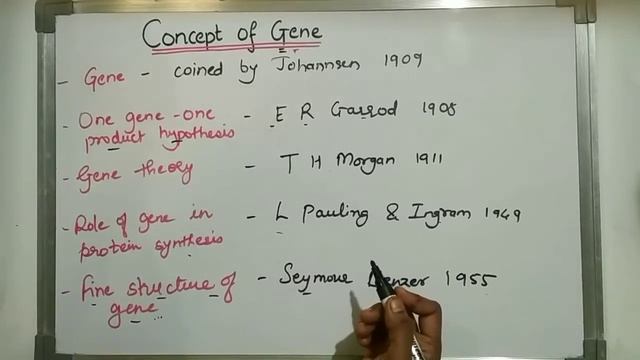 Concept of Gene
- Gene - coined by Johannsen 1909
- One gene-one - E R Garrod 1908
product hypothesis
- Gene theory - T H Morgan 1911
- Role of gene in - L Pauling & Ingram 1949
protein synthesis
- Fine structure of - Seymour 1955
gene...